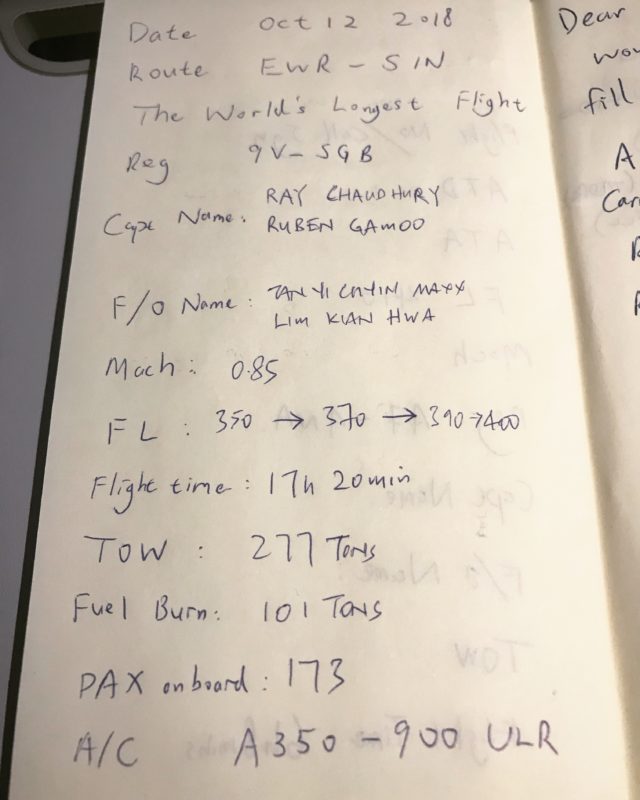 Date Oct 12 2018
Route EWR - SIN
The World's Longest Flight
Reg 9V-SGB
RAY CHAUDHURY
Capt Name: RUBEN GAMOO
TAN YI CHYIN MAXX
F/O Name:
LIM KIAN HWA
Mach: 0.85
FL : 350 → 370 → 390→400
Flight time: 17h 20min
TOW : 277 TONS
Fuel Burn: 101 TONS
PAX onboard: 173
A/C A350-900 ULR
Dear
fill
A